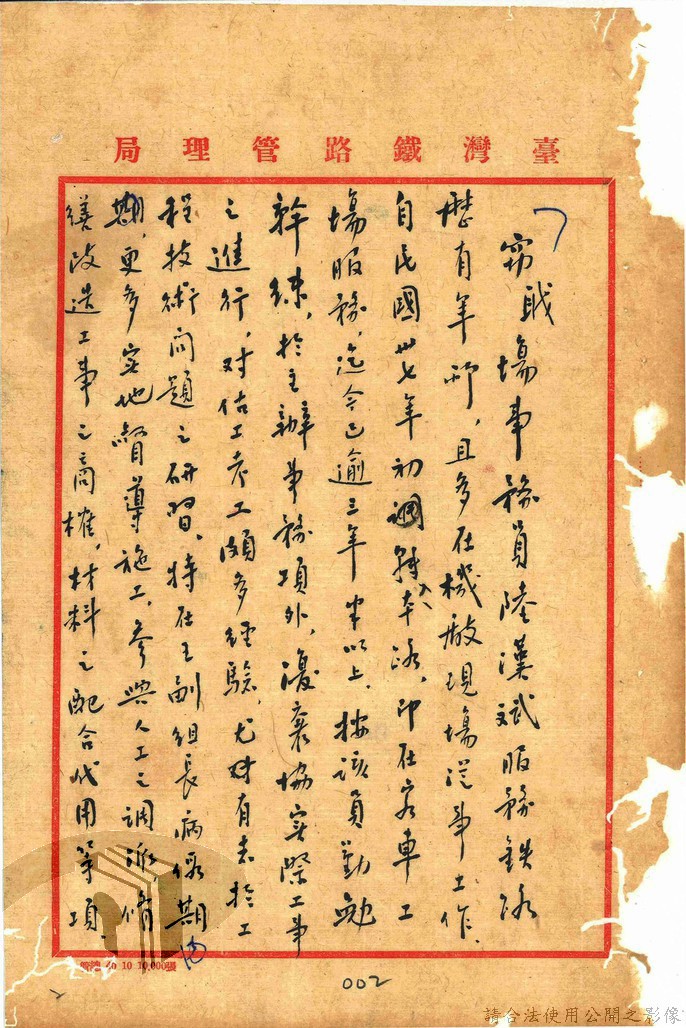 臺灣鐵路管理局
竊職場事務員陸漢斌服務鉄路
歷有年所,且多在機廠現場從事工作.
自民國卅七年初調轉入本路,即在客車工
場服務,迄今已逾三年半以上.按該員勤勉
幹練,於主辦事務項外,復襄協實際工事
之進行,對估工考工頗多經驗,尤對有志於工
程技術問題之研習,特在王副組長病假期內
更多實地督導施工,參與人工之調派修
繕改造工事之商榷,材料之配合代用等項.
10 10 10,000張
002
請合法使用公開之影像